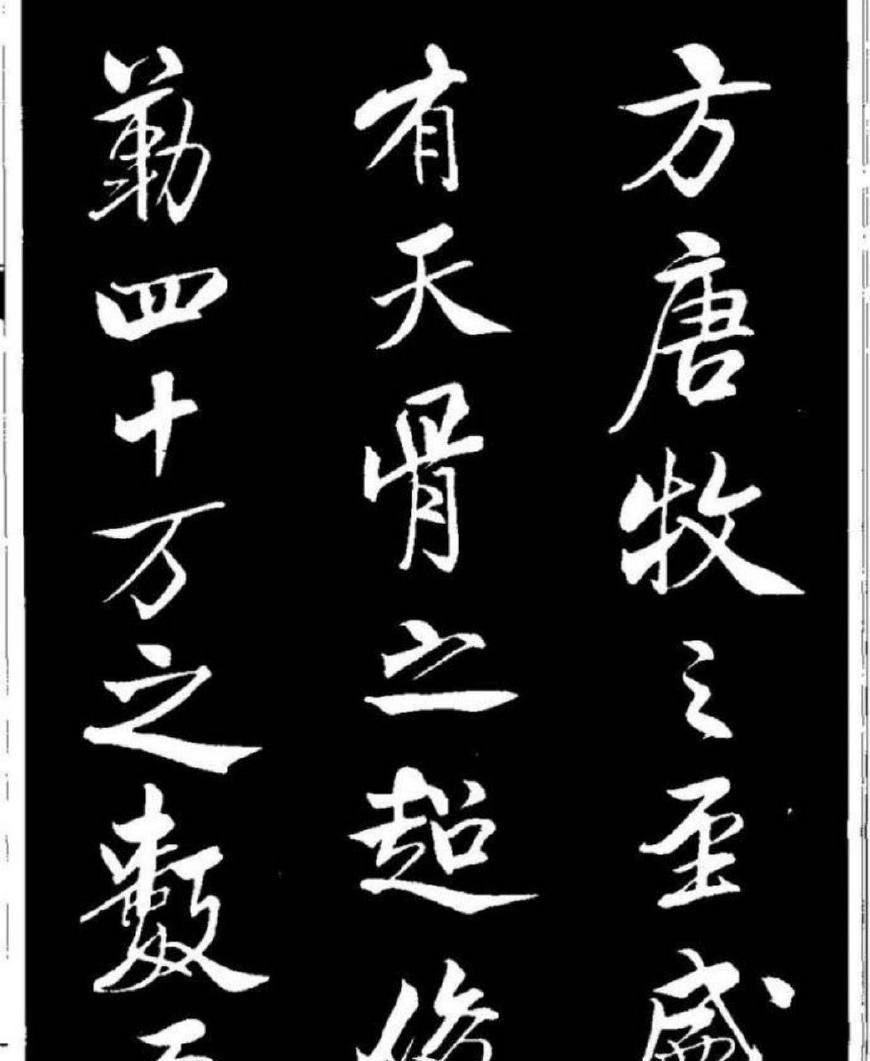 方唐牧之至盛
有天骨之超俊
勒四十万之數